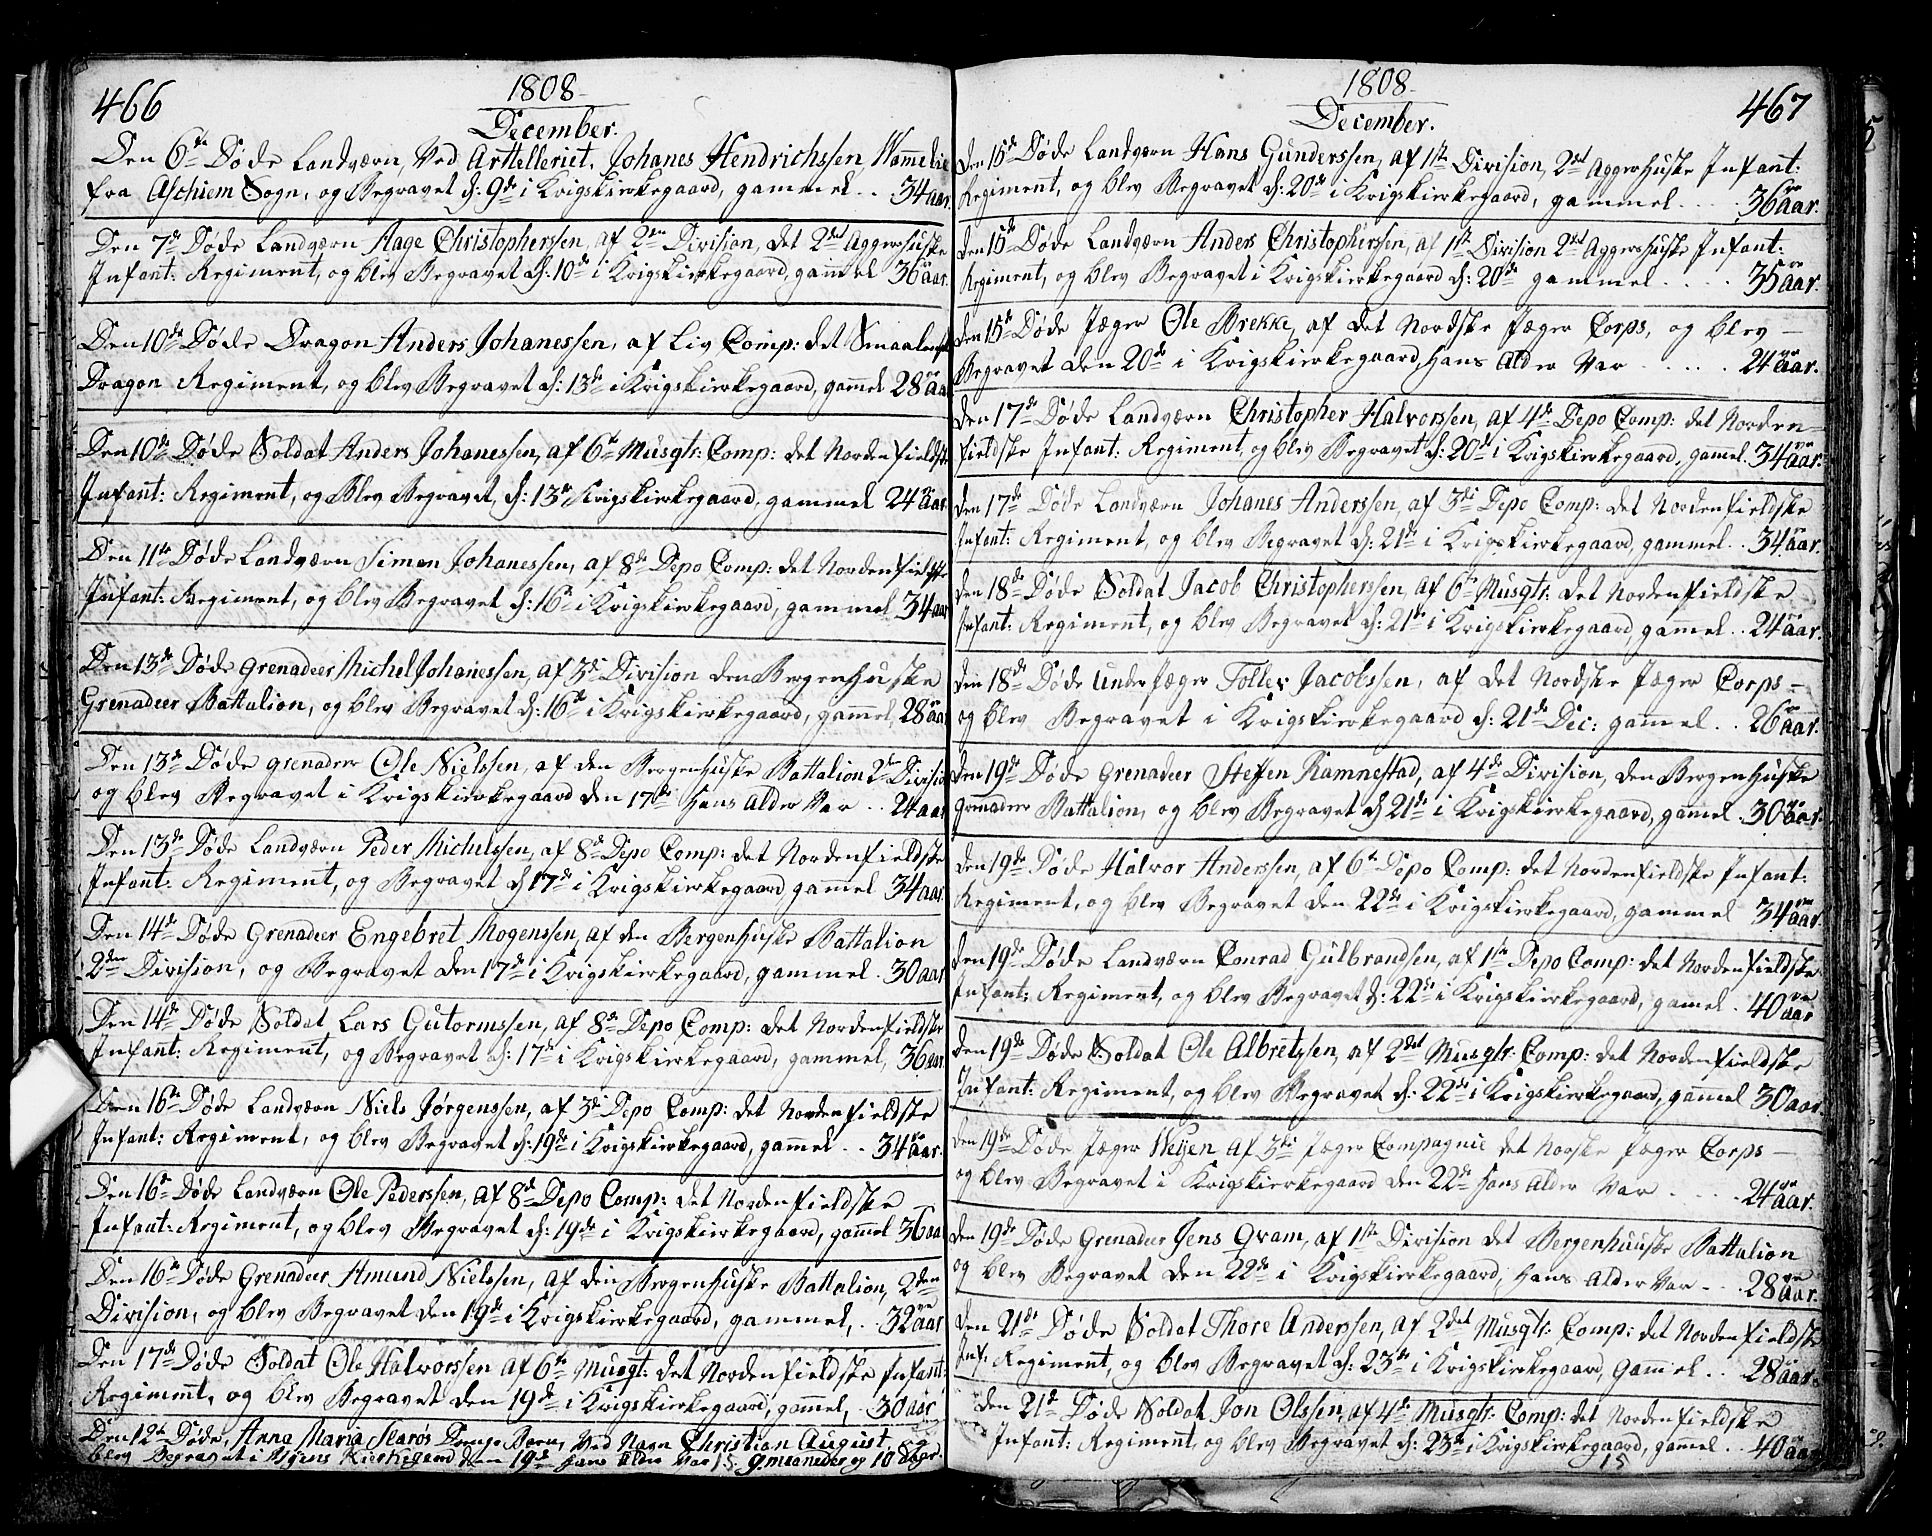 466
1808
December.
Den 6te Døde Landværn, Ved Arttelleriet, Johanes Hendrichssen,
fra Aschiem Sogn, og Begravet d: 9de i Krigskirkegaard, gammel . . 34 aar.
Den 7de Døde Landværn Aage Christophersen, af 2den Division, det 2det Aggershuske
Infant: Regiment, og blev Begravet d: 10de i Krigskirkegaard, gam̄el 36 aar.
Den 10de Døde Dragon Anders Johanessen, af Liv Comp: det Smaalenske
Dragon Regiment, og blev Begravet d: 13de i Krigskirkegaard, gam̄el 28 aar
Den 10de Døde Soldat Anders Johanessen, af 6te Musqtr: Comp: det Nordenfieldske
Infant: Regiment, og Blev Begravet, d: 13de Krigskirkegaard, gammel 24 aar
Den 11te Døde Landværn Simon Johanessen, af 8de Depo Comp: det Nordenfieldske
Infant: Regiment, og blev Begravet d: 16de i Krigskirkegaard, gammel 34 aar
Den 13de Døde Grenadeer Michel Johanessen, af 3die Division den Bergenhuske
Grenadeer Battalion, og blev Begravet d: 16de i Krigskirkegaard, gam̄el, 28 aar
Den 13de Døde grenadeer Ole Nielssen, af den Bergenhuske Battalion 2den Division
og blev Begravet i Krigskirkegaard den 17de Hans Alder Var . . 24 aar
Den 13de Døde Landværn Peder Michelssen, af 8de Depo Comp: det Nordenfieldske
Infant: Regiment, og Begravet d 17de i Krigskirkegaard, gamel . 34 aar.
Den 14de Døde Grenadeer Engebret Mogenssen, af den Bergenhuske Battalion
2den Division, og Begravet den 17de i Krigskirkegaard, gammel . 30 aar
Den 14de Døde Soldat Lars Gutormssen, af 8de Depo Comp: det Nordenfieldske
Infant: Regiment, og Begravet d: 17de i Krigskirkegaard, gammel, 36 aar
Den 16de Døde Landværn Niels Jørgenssen, af 3die Depo Comp: det Nordenfieldske
Infant: Regiment, og blev Begravet d: 19de i Krigskirkegaard, gam̄el . . 34 aar.
Den 16de Døde Landværn Ole Pederssen, af 8de Depo Comp: det Nordenfieldske
Infant: Regiment, og blev Begravet d: 19de i Krigskirkegaard, gam̄el 36 aar
Den 16de Døde Grenadeer Amund Nielssen, af den Bergenhuske Battalion, 2den
Division, og blev Begravet den 19de i Krigskirkegaard, gammel, . . 32 aar
Den 17de Døde Soldat Ole Halvorssen af 6te Musqt: det Nordenfieldske Infant:
Regiment, og blev Begravet den 19de i Krigskirkegaard, gam̄el, . 30 aar
Den 12te Døde, Anna Maria Dreng Barn, Ved Navn Christian August
blev Begravet i Kirkegaard den 19de Hans Alder Var 9 maaneder og 10 dage.
467
1808
December.
Den 15de Døde Landværn Hans Gunderssen, af 1ste Division, 2det Aggerhuske Infant:
Regiment, og blev Begravet d: 20de i Krigskirkegaard, gammel . . . . 36 aar.
Den 15de Døde Landværn Anders Christophersen, af 1ste Division 2det Aggershuske Infant:
Regiment, og blev Begravet i Krigskirkegaard d: 20de gammel . . . . 35 aar.
Den 15de Døde Jæger Ole Brekke, af det Nordske Jæger Corps, og blev —
Begravet den 20de i Krigskirkegaard, Hans Alder Var . . . . . 24 aar.
Den 17de Døde Landværn Christopher Halvorssen, af 4de Depo Comp: det Norden-
fieldske Infant: Regiment, og blev Begravet d: 20de i Krigskirkegaard, gamel . 34 aar.
Den 17de Døde Landværn Johanes Anderssen, af 3die Depo Comp: det Nordenfieldske
Infant: Regiment, og blev Begravet d: 21de i Krigskirkegaard, gammel . . 34 aar.
Den 18de Døde Soldat Jacob Christopherssen, af 6te Musqtr: det Nordenfieldske
Infant: Regiment, og blev Begravet d: 21de i Krigskirkegaard, gam̄el . . 24 aar.
Den 18de Døde Under Jæger Tollev Jacobssen, af det Nordske Jæger Corps —
og blev Begravet i Krigskirkegaard d: 21de Dec: gammel . . 26 aar.
Den 19de Døde Grenadeer Steffen Ramnestad, af 4de Division, den Bergenhuske
Grenadeer Battalion, og blev Begravet d 21de i Krigskirkegaard, gamel . 30 aar.
Den 19de Døde Halvor Anderssen, af 6te Depo Comp: det Nordenfieldske Infant:
Regiment, og blev Begravet den 22de i Krigskirkegaard, gammel 34 aar
Den 19de Døde Landværn Conrad Gulbrandsen, af 1ste Depo Comp: det Nordenfieldske
Infant: Regiment, og blev Begravet d: 22de i Krigskirkegaard, gamel . 40 aar
Den 19de Døde Soldat Ole Albretzsen, af 2det Musqtr: Comp: det Nordenfieldske
Infant: Regiment, og blev Begravet d: 22de i Krigskirkegaard, gam̄el 30 aar.
Den 19de Døde Jæger Weyen af 3die Jæger Compagnie det Norske Jæger Corps —
og blev Begravet i Krigskirkegaard den 22de Hans Alder Var . . . . 24 aar.
Den 19de Døde Grenadeer Jens Qvam, af 1ste Division det Bergenhuuske Battalion
og blev Begravet den 22de i Krigskirkegaard, Hans Alder Var . . . 28 aar.
Den 21de Døde Soldat Thore Anderssen, af 2det Musqtr: Comp: det Nordenfieldske
Inf: Regiment, og blev Begravet d: 23de i Krigskirkegaard, Gam̄el . . 28 aar.
Den 21de Døde Soldat Jon Olssen, af 4de Musqtr: Comp: det Nordenfieldske
Infant: Regiment, og blev Begravet d: 23de i Krigskirkegaard, gam̄el . . 40 aar
15